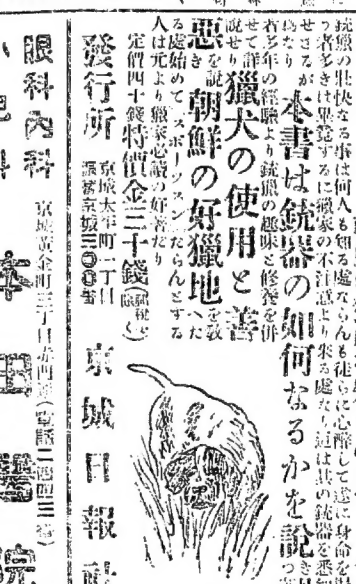 銃獵の壯快なる事は何人も知る處ならんも徒らに心醉して遂に身命を
つ者多きは畢竟するに獵家の不注意より來る處なり這は其の銃器を悉知
せざるが
爲なり 本書は銃器の如何なるかを説き
者多年の經驗より銃獵の趣味と修養を併
せて詳
説せり 獵犬の使用と善
惡 を説き 朝鮮の好獵地 を敎へた
る處始めてスポーツマンたらんとする
人は元より獵家必讀の好著だり
定價四十錢特價金三十錢
發行所 京城太平町一丁目 振替京城三〇〇番 京城日報社
眼科內科 京城黃金町三丁目赤門前
本田醫院